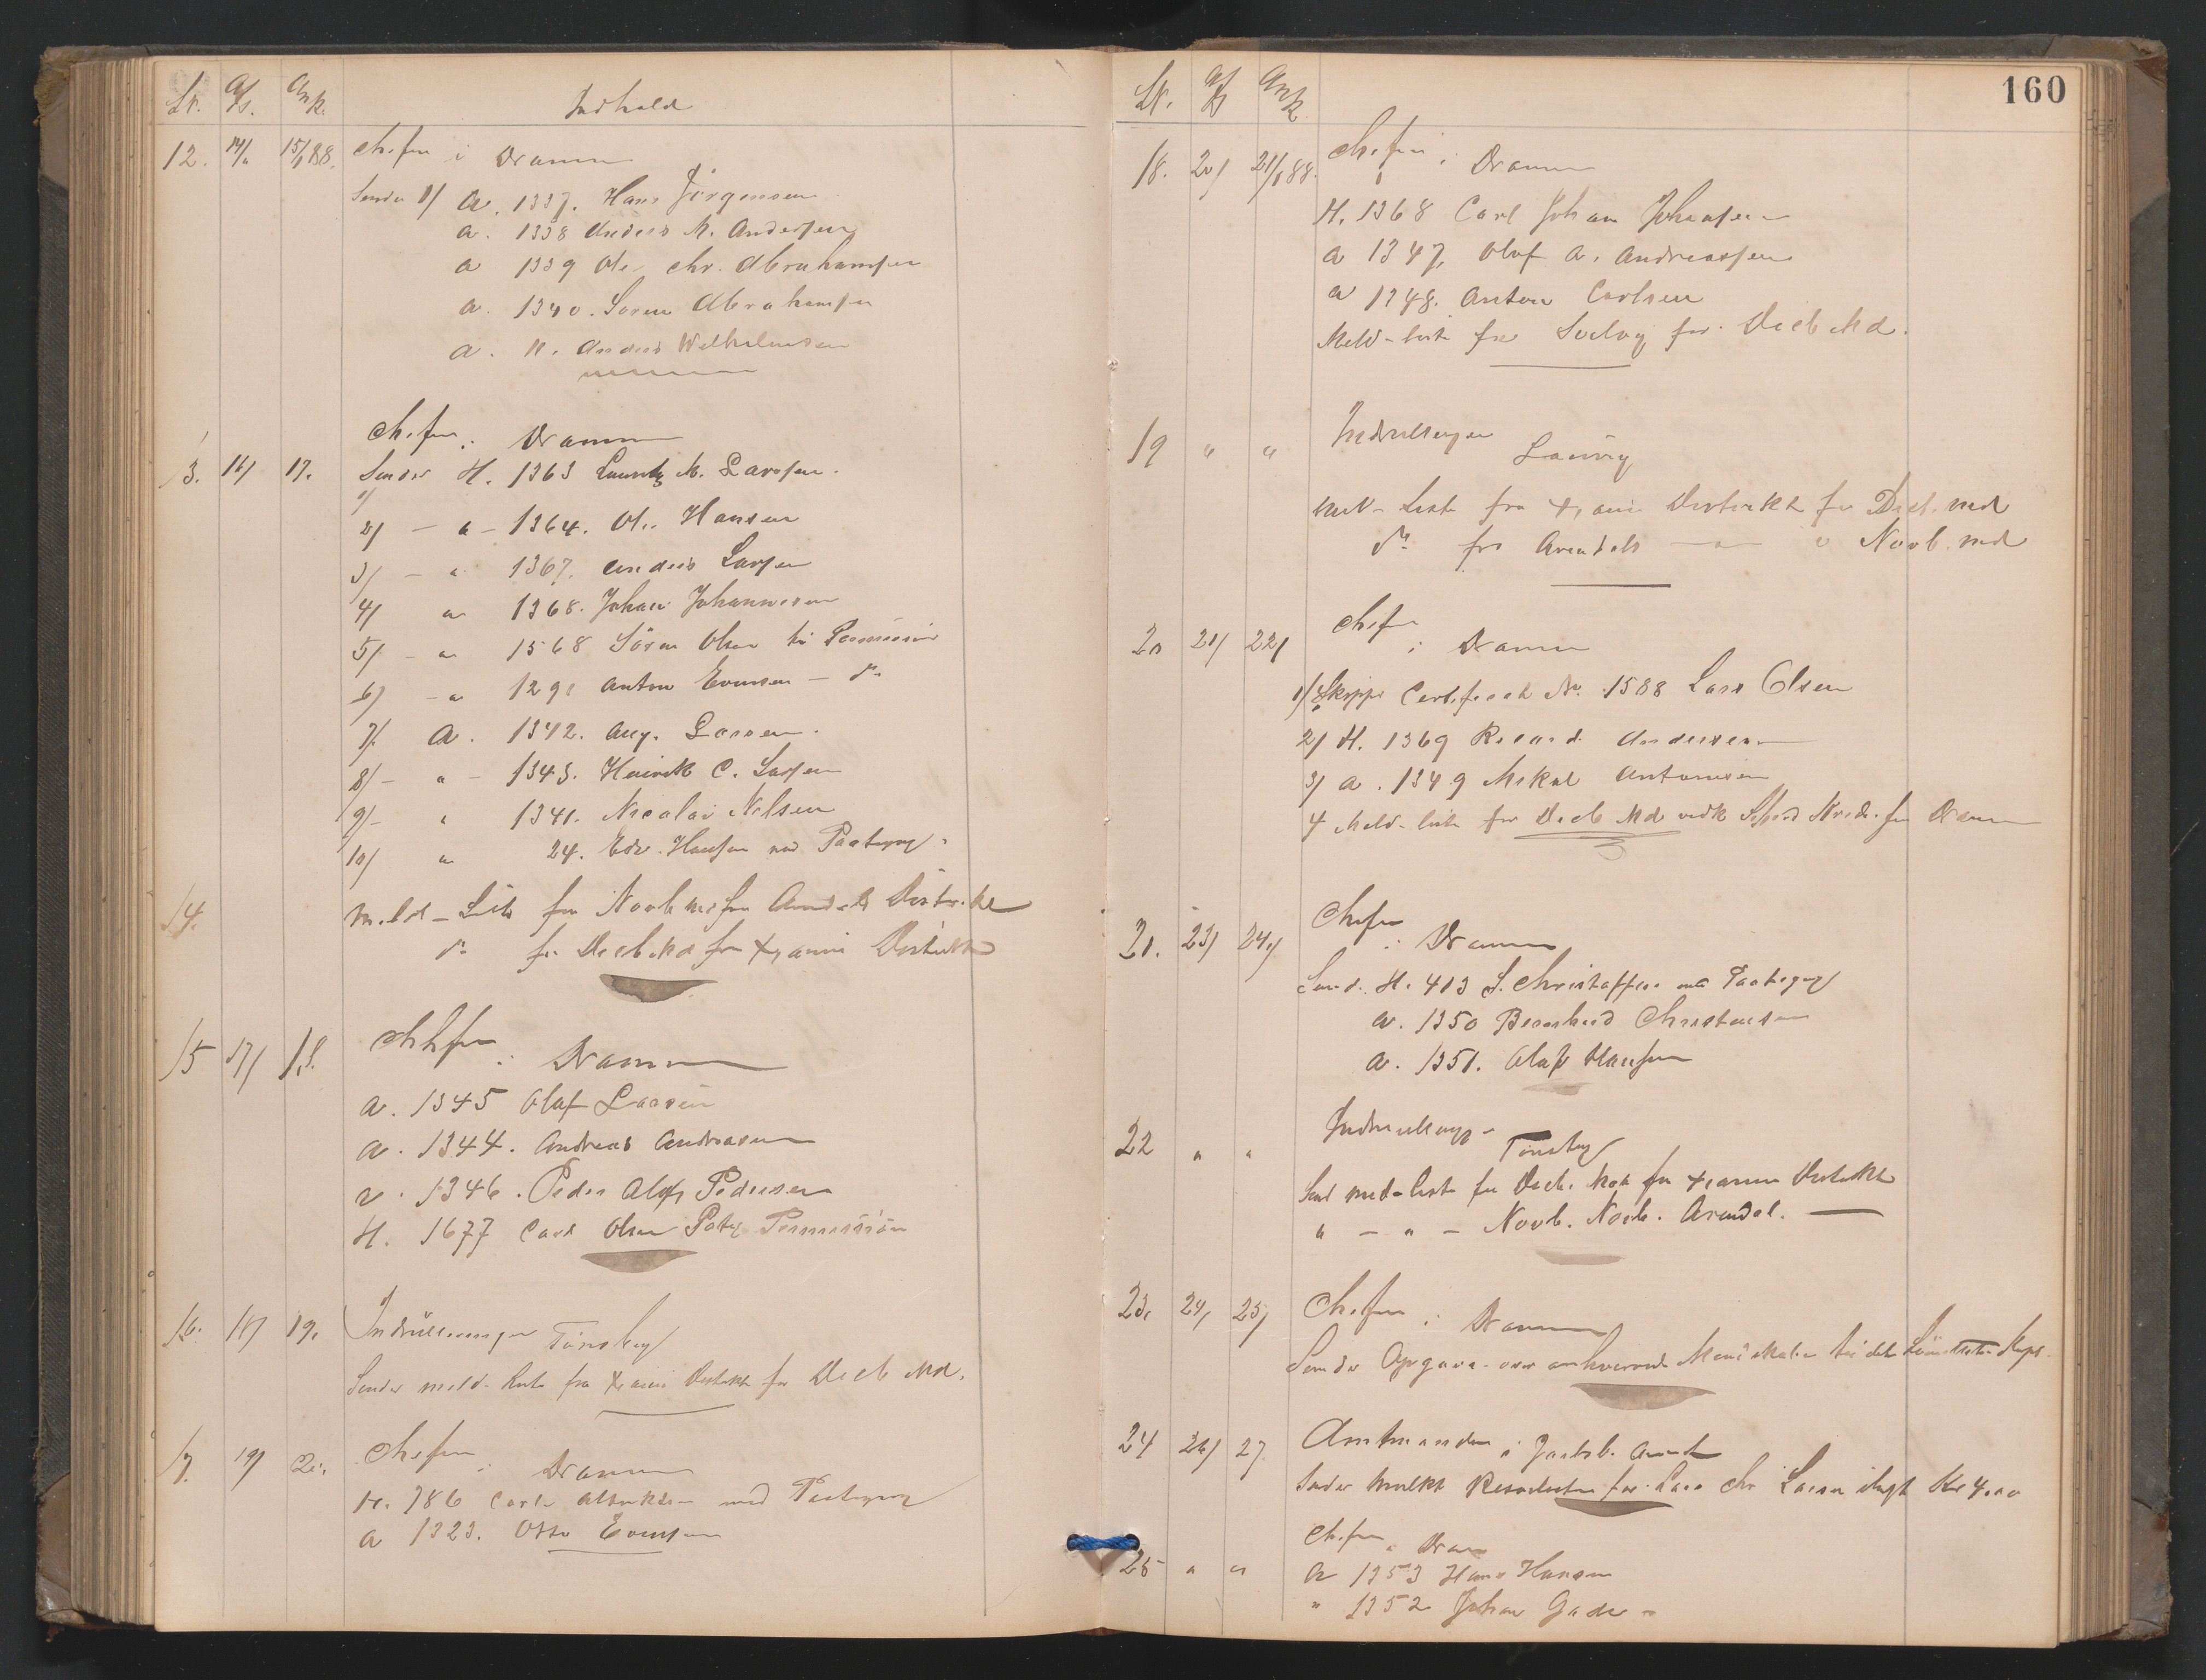 Lr. Afs. Ank. Indhold
12. 14/1 15/1 88. Chefen i Dramm
Sender 1/ A. 1337. Hans Jörgensen
A. 1338 Anders M. Andersen
A 1339 Ole Chr. Abrahamsen
A. 1340. Soren Abrahamsen
A. 11. Anders Wilhelmsen
Chefen i Dramm
13. 16/ 17. Sender H. 1363 Lauritz M. Larssen.
2/ - " - 1364. Ole Hansen
3/ - " 1367. Anders Larsen
4/ " 1368. Johan Johannesen
5/ - " 1568 Sören Olsen til Permission
6/ - " 1291 Anton Evensen - do
7/. A. 1342. Aug. Larsen.
8/ - " - 1343. Henrik C. Larsen
9/ - " 1341. Nicolai Nilsen
10/ " 24. Edv. Hansen med Paategng.
14. Meld-Liste for Novb Md fra Arendals Distrikt
do for Decb Md fra Xania Distrikt
15 17/ 18. Chefen i Dramm
A. 1345 Olaf Larsen
A. 1344. Andreas Andreasen
A. 1346. Peder Alofs Pedersen
H. 1677 Carl Olsen Patg Permission
16. 18/ 19. Indrulleringen Tönsberg
Sender meld-liste fra Xania Distrikt for Decb Md.
17. 19/ 20. Chefen i Dramm
H. 786 Carl med Paategning
A 1323. Otto Evensen
160
Lr. Afs Ank
18. 20/ 21/1 88. Chefen i Dramm
H. 1368 Carl Johan Johansen
A 1347, Olof A. Andreassen
A 1348. Anton Carlsen
Meld-liste fra Svelvig for Decb Md.
19 " " Indrulleringen Laurvig
Meld-Liste fra Xania Distrikt for Decb. Md
do fra Arendals - " - " Novb. Md
20 21/ 22/ Chefen i Dramm
1/ Skipper Certificat No. 1588 Lars Olsen
2/ H. 1369 Andersen
3/ A. 1349 Mikal Antonsen
4 Meld-liste for Decb Md vedk fra Dramm
21. 23/ 24/ Chefen i Dramm
Send. H. 413 S. Christoffersen med Paategng
A. 1350 Bernhard Christensen
A. 1351. Olaf Hansen
22 " " Indrulleringen Tönsberg
Send meld-liste for Decb. Md fra Xania Distrikt
" - " - Novb. Arendal.
23. 24/ 25/ Chefen i Dramm
Sender Opgave over til det
24 26/ 27. Amtmanden i Jarlsb. Amt
Sender Mulkt Resolution for Lars Chr Larsen ilagt Kr 4.00
Chefen i Dram
25 " " A 1353 Hans Hansen
" 1352 Johan Gade